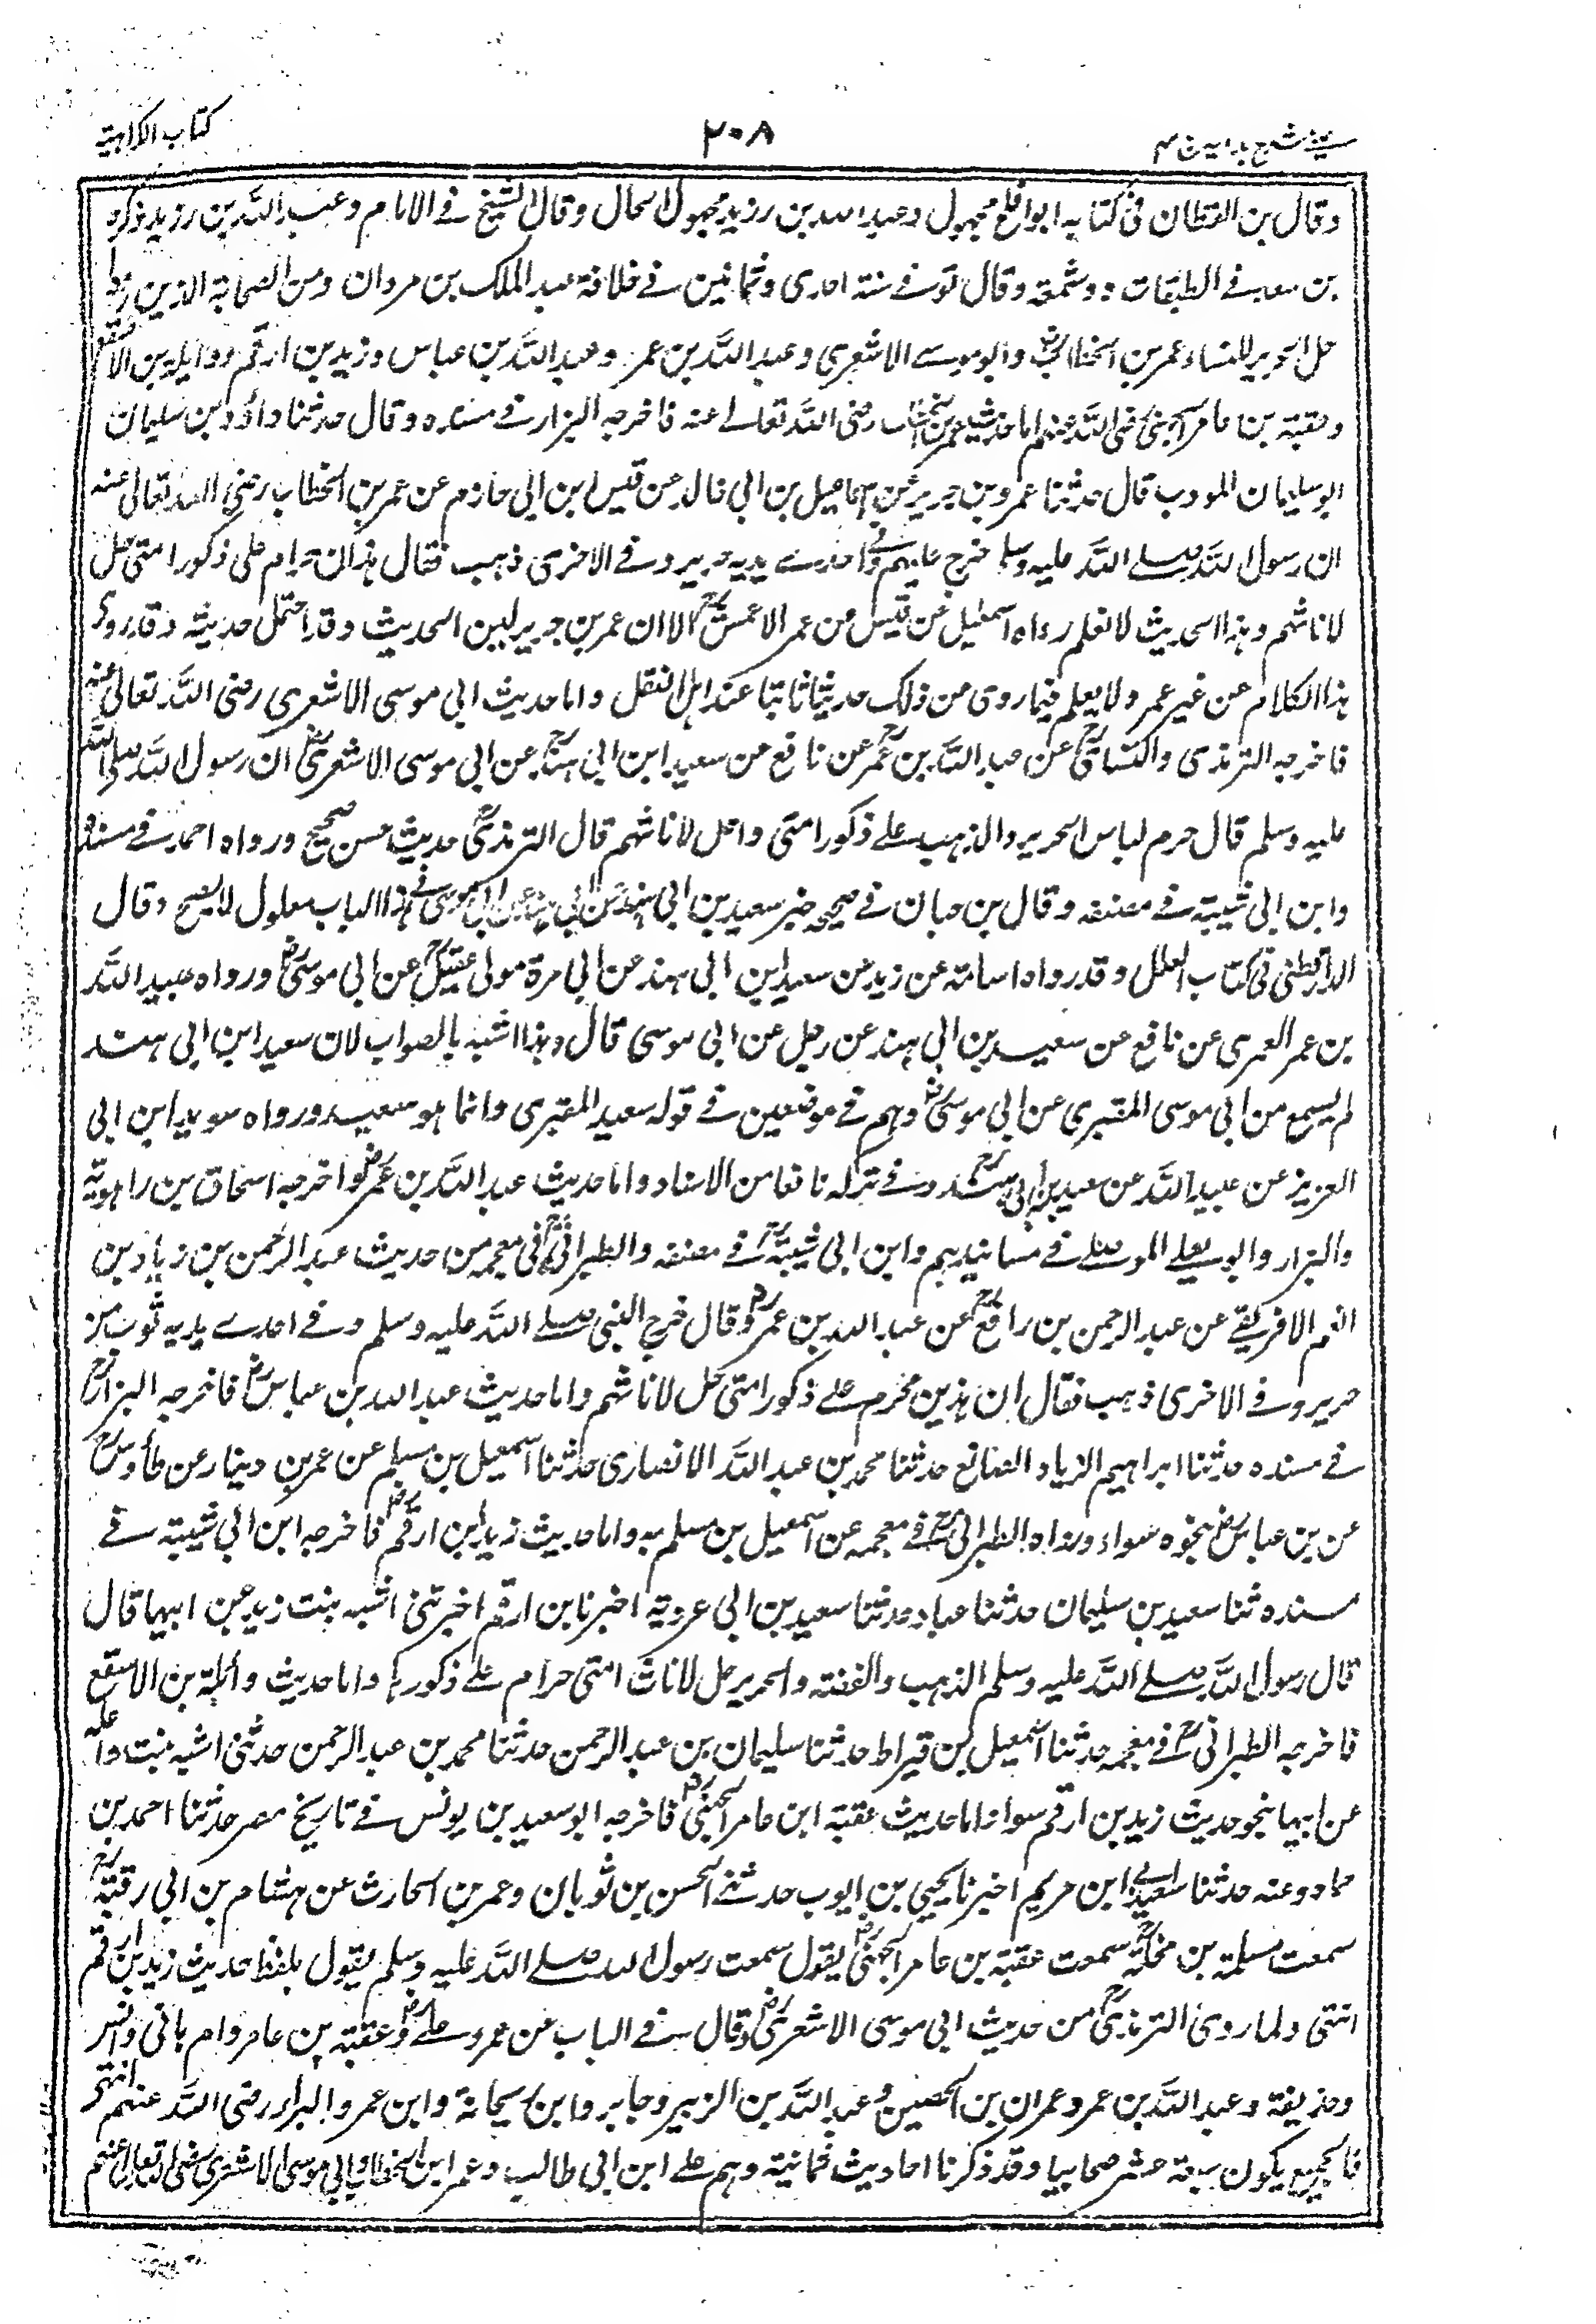 كتاب الكراهية
٢٠٨
عينے شرح ہدایہ ن ٣
وقال بن القطان فى كتابه ابوافلح مجهول وعبد الله بن رزيد مجهول الحال وقال الشيخ فے الامام وعبد الله بن رزيد ذكره
بن سعد فے الطبقات ووثقه وقال توفے سنة احدى وثمانين فے خلافة عبد الملك بن مروان ومن الصحابة الذين رووا
حل الحرير للنساء عمر بن الخطاب وابو موسے الاشعرى وعبد الله بن عمر وعبد الله بن عباس وزيد بن ارقم ووايلة بن الاسقع
وعقبة بن عامر الجهنى رضى الله عنهم اما حديث عمر بن الخطاب رضى الله تعالے عنه فاخرجه البزار فے مسنده وقال حدثنا داؤد بن سليمان
ابو سليمان المودب قال حدثنا عمرو بن جرير عن اسماعيل بن ابى خالد عن قيس ابن ابى حازم عن عمر بن الخطاب رضى الله تعالى عنه
ان رسول الله صلے الله عليه وسلم خرج عليهم وفے احدے يديه حرير وفے الاخرى ذهب فقال هذان حرام على ذكور امتى حل
لاناثهم وهذا الحديث لا نعلم رواه اسمعيل عن قيس عن عمر الا عمر الا ان عمر بن جرير لين الحديث وقد احتمل حديثه وقد روى
هذا الكلام عن غير عمر ولا يعلم فيما روى من ذلك حديثا ثابتا عند اهل النقل واما حديث ابى موسى الاشعرى رضى الله تعالى عنه
فاخرجه الترمذى والنسائى عن عبد الله بن عمر عن نافع عن سعيد ابن ابى هند عن ابى موسى الاشعرى ان رسول الله صلى الله
عليه وسلم قال حرم لباس الحرير والذهب علے ذكور امتى واحل لاناثهم قال الترمذى حديث حسن صحيح ورواه احمد فے مسنده
وابن ابى شيبة فے مصنفه وقال بن حبان فے صحيحه خبر سعيد بن ابى هند عن ابى موسى فے هذا الباب معلول لا يصح وقال
الدارقطنى فى كتاب العلل وقد رواه اسامة عن زيد عن سعيد ابن ابى هند عن ابى مرة مولى عقيل عن ابى موسى ورواه عبيد الله
بن عمر العمرى عن نافع عن سعيد بن ابى هند عن رجل عن ابى موسى قال وهذا اشبه بالصواب لان سعيد ابن ابى هند
لم يسمع من ابى موسى المقبرى عن ابى موسى وهم فے موضعين فے قوله سعيد المقبرى وانما هو سعيد ورواه سويد ابن ابى
العزيز عن عبيد الله عن سعيد بن ابى هند وفے تركه نافعا من الاسناد واما حديث عبد الله بن عمر فاخرجه اسحاق بن راهوية
والبزار وابو يعلے الموصلے فے مسانيدهم وابن ابى شيبة فے مصنفه والطبرانى فى معجمه من حديث عبد الرحمن بن زياد بن
انعم الافريقے عن عبد الرحمن بن رافع عن عبد الله بن عمر وقال خرج النبى صلے الله عليه وسلم وفے احدے يديه ثوب من
حرير وفے الاخرى ذهب فقال ان هذين محرم علے ذكور امتى حل لاناثهم واما حديث عبد الله بن عباس فاخرجه البزار
فے مسنده حدثنا ابراهيم الزياد الصائغ حدثنا محمد بن عبد الله الانصارى حدثنا اسمعيل بن مسلم عن عمر بن دينار عن طاؤس
عن بن عباس نحوه سواء ورواه الطبرانى فے معجمه عن اسمعيل بن مسلم به واما حديث زيد ابن ارقم فاخرجه ابن ابى شيبة فے
مسنده ثنا سعيد بن سليمان حدثنا عباد حدثنا سعيد بن ابى عروبة اخبرنا بن ارقم اخبرتنى انيسه بنت زيد عن ابيها قال
قال رسول الله صلے الله عليه وسلم الذهب والفضة والحرير حل لاناث امتى حرام علے ذكورها واما حديث واثلة بن الاسقع
فاخرجه الطبرانى فے معجمه حدثنا اسمعيل بن قيراط حدثنا سليمان بن عبد الرحمن حدثنا محمد بن عبد الرحمن حدثنى اشيه بنت واثلة
عن ابيها نحو حديث زيد بن ارقم سواء اما حديث عقبة ابن عامر الجهنى فاخرجه ابو سعيد بن يونس فے تاريخ مصر حدثنا احمد بن
حماد وعنه حدثنا سعيد ابن مريم اخبرنا يحيى بن ايوب حدثنے الحسن بن ثوبان وعمر بن الحارث عن هشام بن ابى رقية
سمعت مسلمة بن مخلد سمعت عقبة بن عامر الجهنى يقول سمعت رسول الله صلے الله عليه وسلم يقول بلفظ حديث زيد بن ارقم
انتهى ولما روى الترمذى من حديث ابى موسى الاشعرى وقال فے الباب عن عمر وعلے وعقبة بن عامر وام هانى وانس
وحذيفة وعبد الله بن عمر وعمران بن الحصين وعبد الله بن الزبير وجابر وابن ريحانة وابن عمر والبراء رضى الله عنهم انتهى
فالجميع يكون سبعة عشر صحابيا وقد ذكرنا احاديث ثمانية وهم علے ابن ابى طالب وعمر ابن الخطاب وابى موسى الاشعرى رضى الله تعالى عنهم